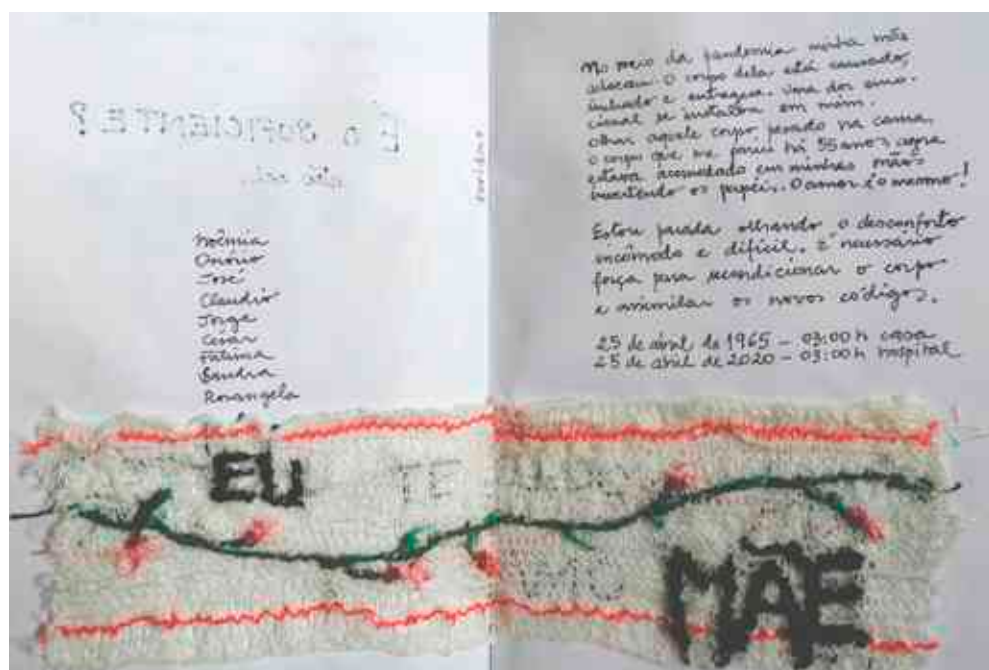 É o SUFICIENTE?
Noêmia
Onório
José
Claudio
Jorge
Cesar
Fátima
Sandra
Rosangela
No meio da pandemia minha mãe
adoeceu O corpo dela está cansado,
inchado e entregue. Uma dor emo-
cional se instalou em mim.
olhar aquele corpo pesado na cama,
o corpo que me pariu há 55 anos agora
estava acomodado em minhas mãos
invertendo os papéis. O amor é o mesmo!
Estou parada olhando o desconforto
incômodo e difícil. É necessário
força para recondicionar o corpo
e assimilar os novos códigos.
25 de abril de 1965 - 03:00 h casa
25 de abril de 2020 - 03:00 h hospital
EU TE
MÃE